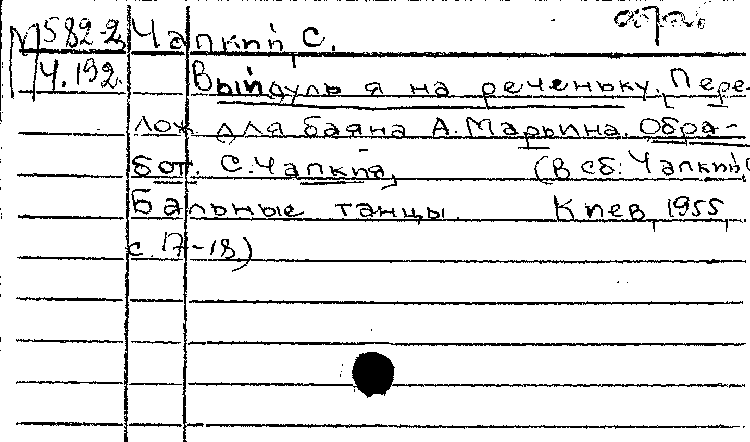 М582-2 Чапкий, С.
Ч.192. Выйду ль я на реченьку. Пере-
лож. для баяна А. Марьина. Обра-
бот. С. Чапкия, (В сб: Чапкий,
Бальные танцы. Киев, 1955,
с. 17-18.)